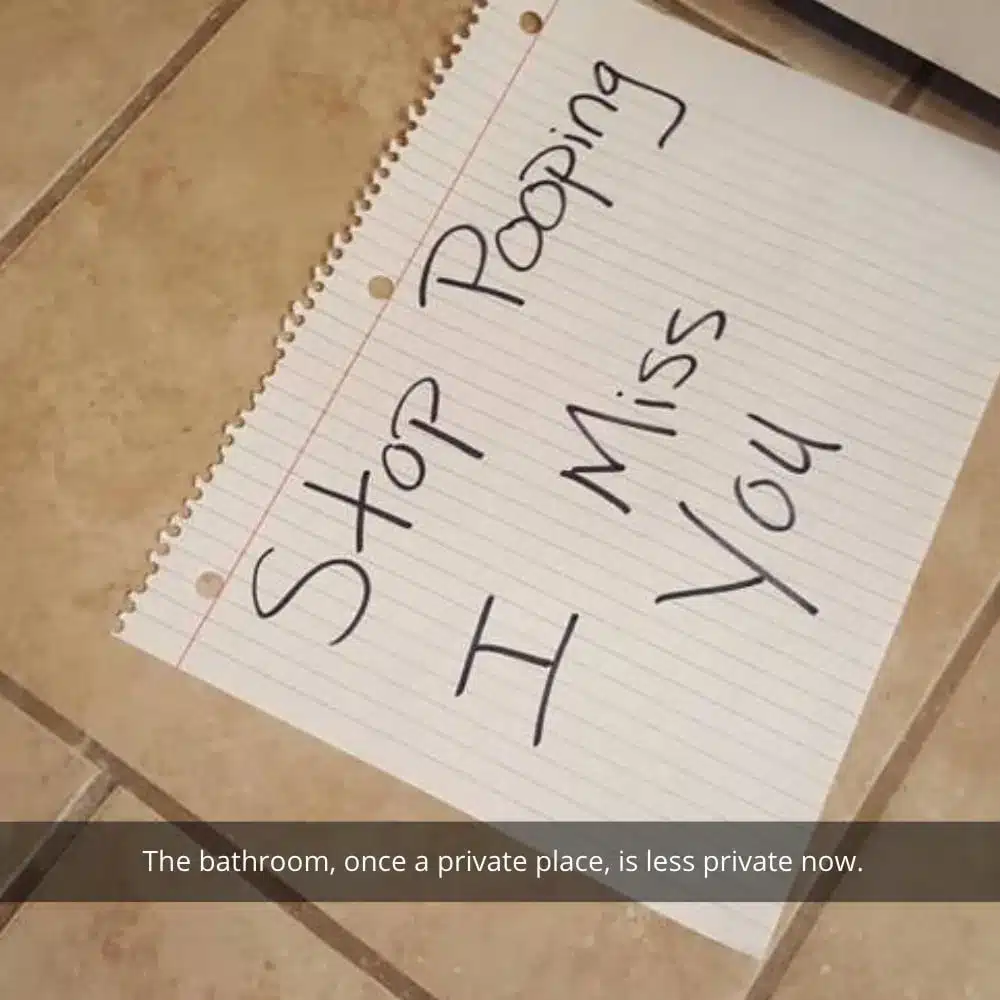 Stop Pooping
I Miss
You
The bathroom, once a private place, is less private now.